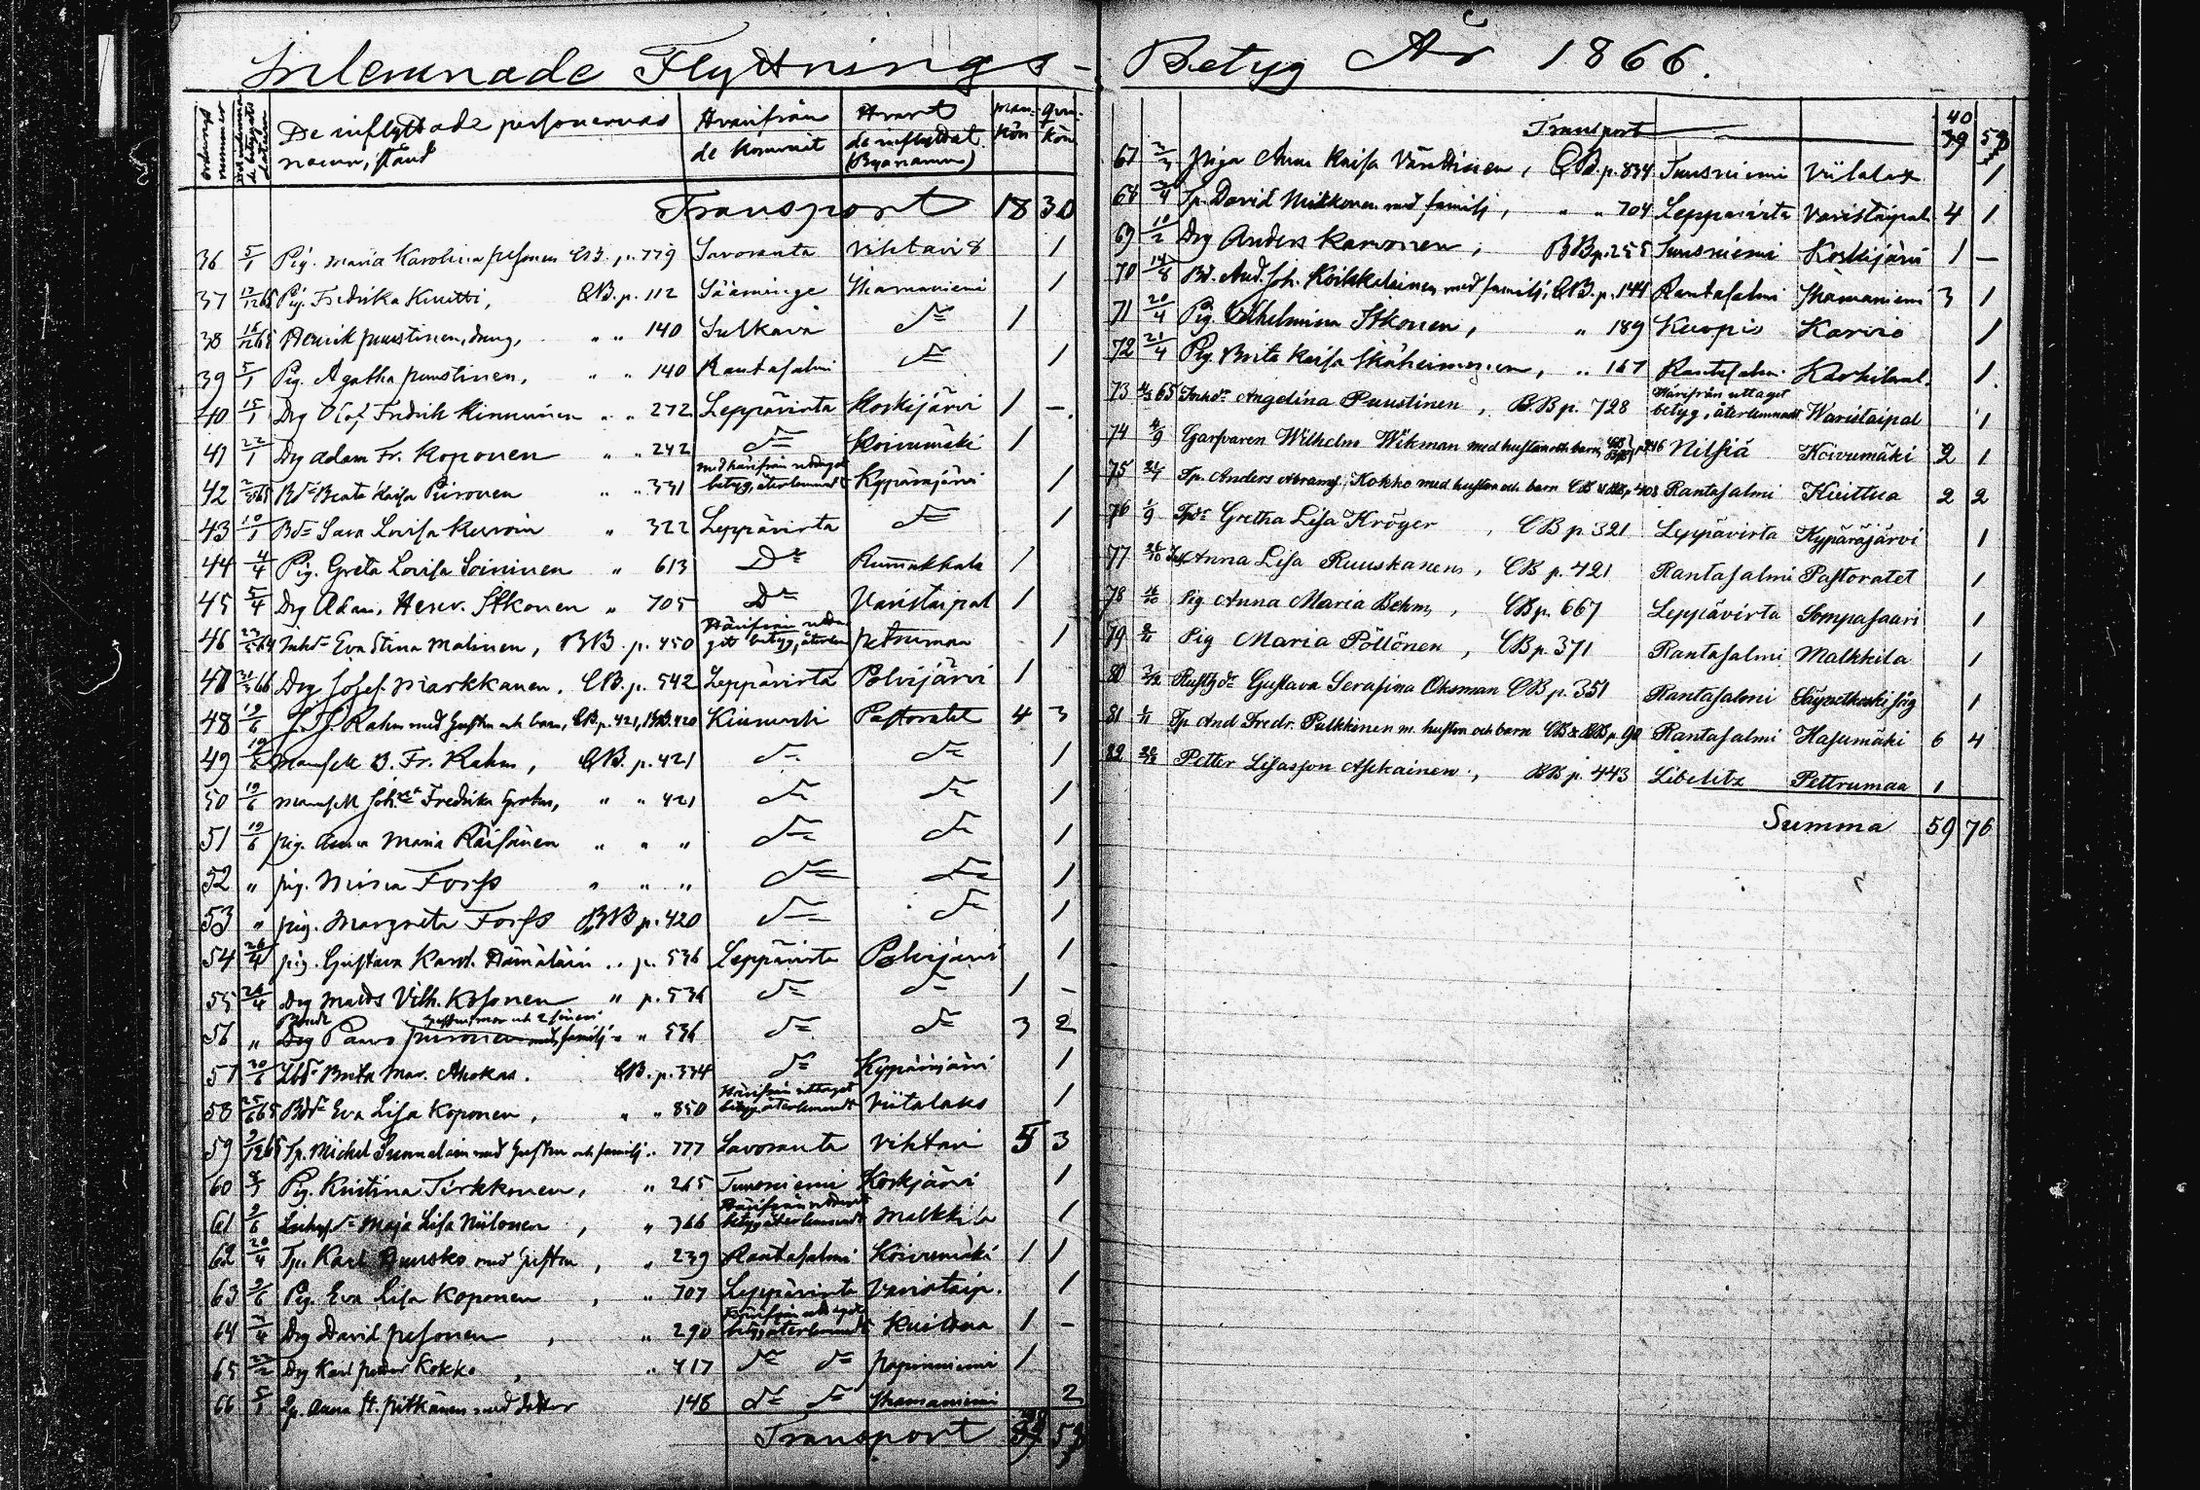 Inlemnade Flyttnings-
Betyg År 1866.
De inflyttade personernas namn, stånd
Hvarifrån de kommit
Hvart de inflyttat (Byanamn)
mankön
qvinkön
Transport 18 30
36 5/1 Pig. Maria Karolina Pesonen CB. p. 779 Savoranta Vihtari 1
37 Pig. Fredrika Knutti, CB. p. 112 Sääminge Ihamaniemi 1
38 Henrik Puustinen, dräng, " " 140 Sulkava Do 1
39 5/1 Pig. Agatha Puustinen, " " 140 Rantasalmi Do 1
40 15/1 Drg Olof Fredrik Kinnunen " " 272 Leppävirta Koskijärvi 1 -
41 22/1 Drg Adam Fr. Koponen " " 242 Do Koivumäki 1
42 Bdr Beata Kaisa Piironen " " 331 betyg, återlemnadt Kypäräjärvi 1
43 10/1 Bdr Sara Lovisa Kurvin " 322 Leppävirta Do 1
44 4/4 Pig. Greta Lovisa Soininen " 613 Do Rummukkala 1
45 5/4 Drg Adam Henr. Itkonen " 705 Do Varistaipal 1
46 Inhdr Eva Stina Malinen, BB. p. 450 Härifrån uttagit betyg, återlem Petrumaa 1
47 Drg Josef Markkanen, CB. p. 542 Leppävirta Polvijärvi 1
48 19/6 J. F. Rahm med hustru och barn, CB p. 421, BB. 420 Pastoratet 4 3
49 19/6 Mamsell B. Fr. Rahm, CB. p. 421 Do Do 1
50 19/6 Mamsell Joh:na Fredrika " " 421 Do Do 1
51 19/6 pig. Anna Maria Räisänen " " " Do Do 1
52 " pig. Miina Forss " " " Do Do 1
53 " pig. Margreta Forss BB p. 420 Do Do 1
54 26/4 pig. Gustava Karol. Hämäläin " p. 536 Leppävirta Polvijärvi 1
55 26/4 Drg Matts Vilh. Kosonen " p. 536 Do Do 1 -
56 " Bonde Paavo med familj " " 536 Do Do 3 2
57 30/6 Brita Mar. Ahokas. CB. p. 334 Do Kypäräjärvi 1
58 25/6 65 Bdr Eva Lisa Koponen, " " 850 Härifrån uttaget betyg återlemnadt Viitalaks 1
59 Sp. Michel Sunnalain med hustru och familj " 777 Savoranta Vihtari 5 3
60 Pig. Kristina Tirkkonen, " 265 Tuusniemi Koskijärvi 1
61 2/6 Maja Lisa Niilonen, " 366 betyg återlemnadt Malkkila 1
62 20/4 Tp. Karl Huusko med hustru, " 239 Rantasalmi Koivumäki 1 1
63 2/6 Pig. Eva Lisa Koponen, " 707 Leppävirta Varistaip. 1
64 Drg David Pesonen, " 290 betyg återlemnadt Kuittua 1 -
65 Drg Karl Petter Kokko, " 417 Do Do Papinniemi 1
66 5/1 Anna St. Pitkänen med dotter 148 Do Do Ihamaniemi 2
Transport 39 53
Transport 40 39 53
67 2/3 Piga Anna Kaisa Vänttinen, CB. p. 834 Tuusniemi Viilalax 1
68 Sp. David Mikkonen med familj, " " 704 Leppävirta Varistaipal 4 1
69 10/2 Drg Anders Karvonen, BB p. 255 Tuusniemi Koskijärvi 1 -
70 14/8 Bd. And. Joh. Koikkalainen med familj, CB. p. 144 Rantasalmi Ihamaniemi 3 1
71 20/4 Pig Vilhelmina Itkonen, " 189 Kuopio Karvio 1
72 21/4 Pig. Brita Kaisa Ikäheimonen, " 167 Rantasalmi Karhilaul. 1
73 Inhdr Angelina Puustinen, B.B p. 728 Härifrån uttaget betyg, återlemnadt Waristaipal 1
74 Garfvaren Wilhelm Wikman med hustru och barn, Nilsiä Koivumäki 2 1
75 Sp. Anders Abramss. Kokko med hustru och barn CB & BB p. 408 Rantasalmi Kuittua 2 2
76 1/9 Tpdr Gretha Lisa Kröger, CB p. 321 Leppävirta Kypäräjärvi 1
77 26/10 Anna Lisa Ruuskanen, CB p. 421 Rantasalmi Pastoratet 1
78 Pig Anna Maria Behm, CB p. 667 Leppävirta Sompasaari 1
79 Pig Maria Pöllönen, CB p. 371 Rantasalmi Malkkila 1
80 Gustava Serafina Oksman CB p. 351 Rantasalmi 1
81 Tp And Fredr. Pulkkinen m. hustru och barn CB & BB p. 90 Rantasalmi Hasumäki 6 4
82 Petter Lisasson Asikainen, BB p. 443 Libelitz Pettrumaa 1
Summa 59 76